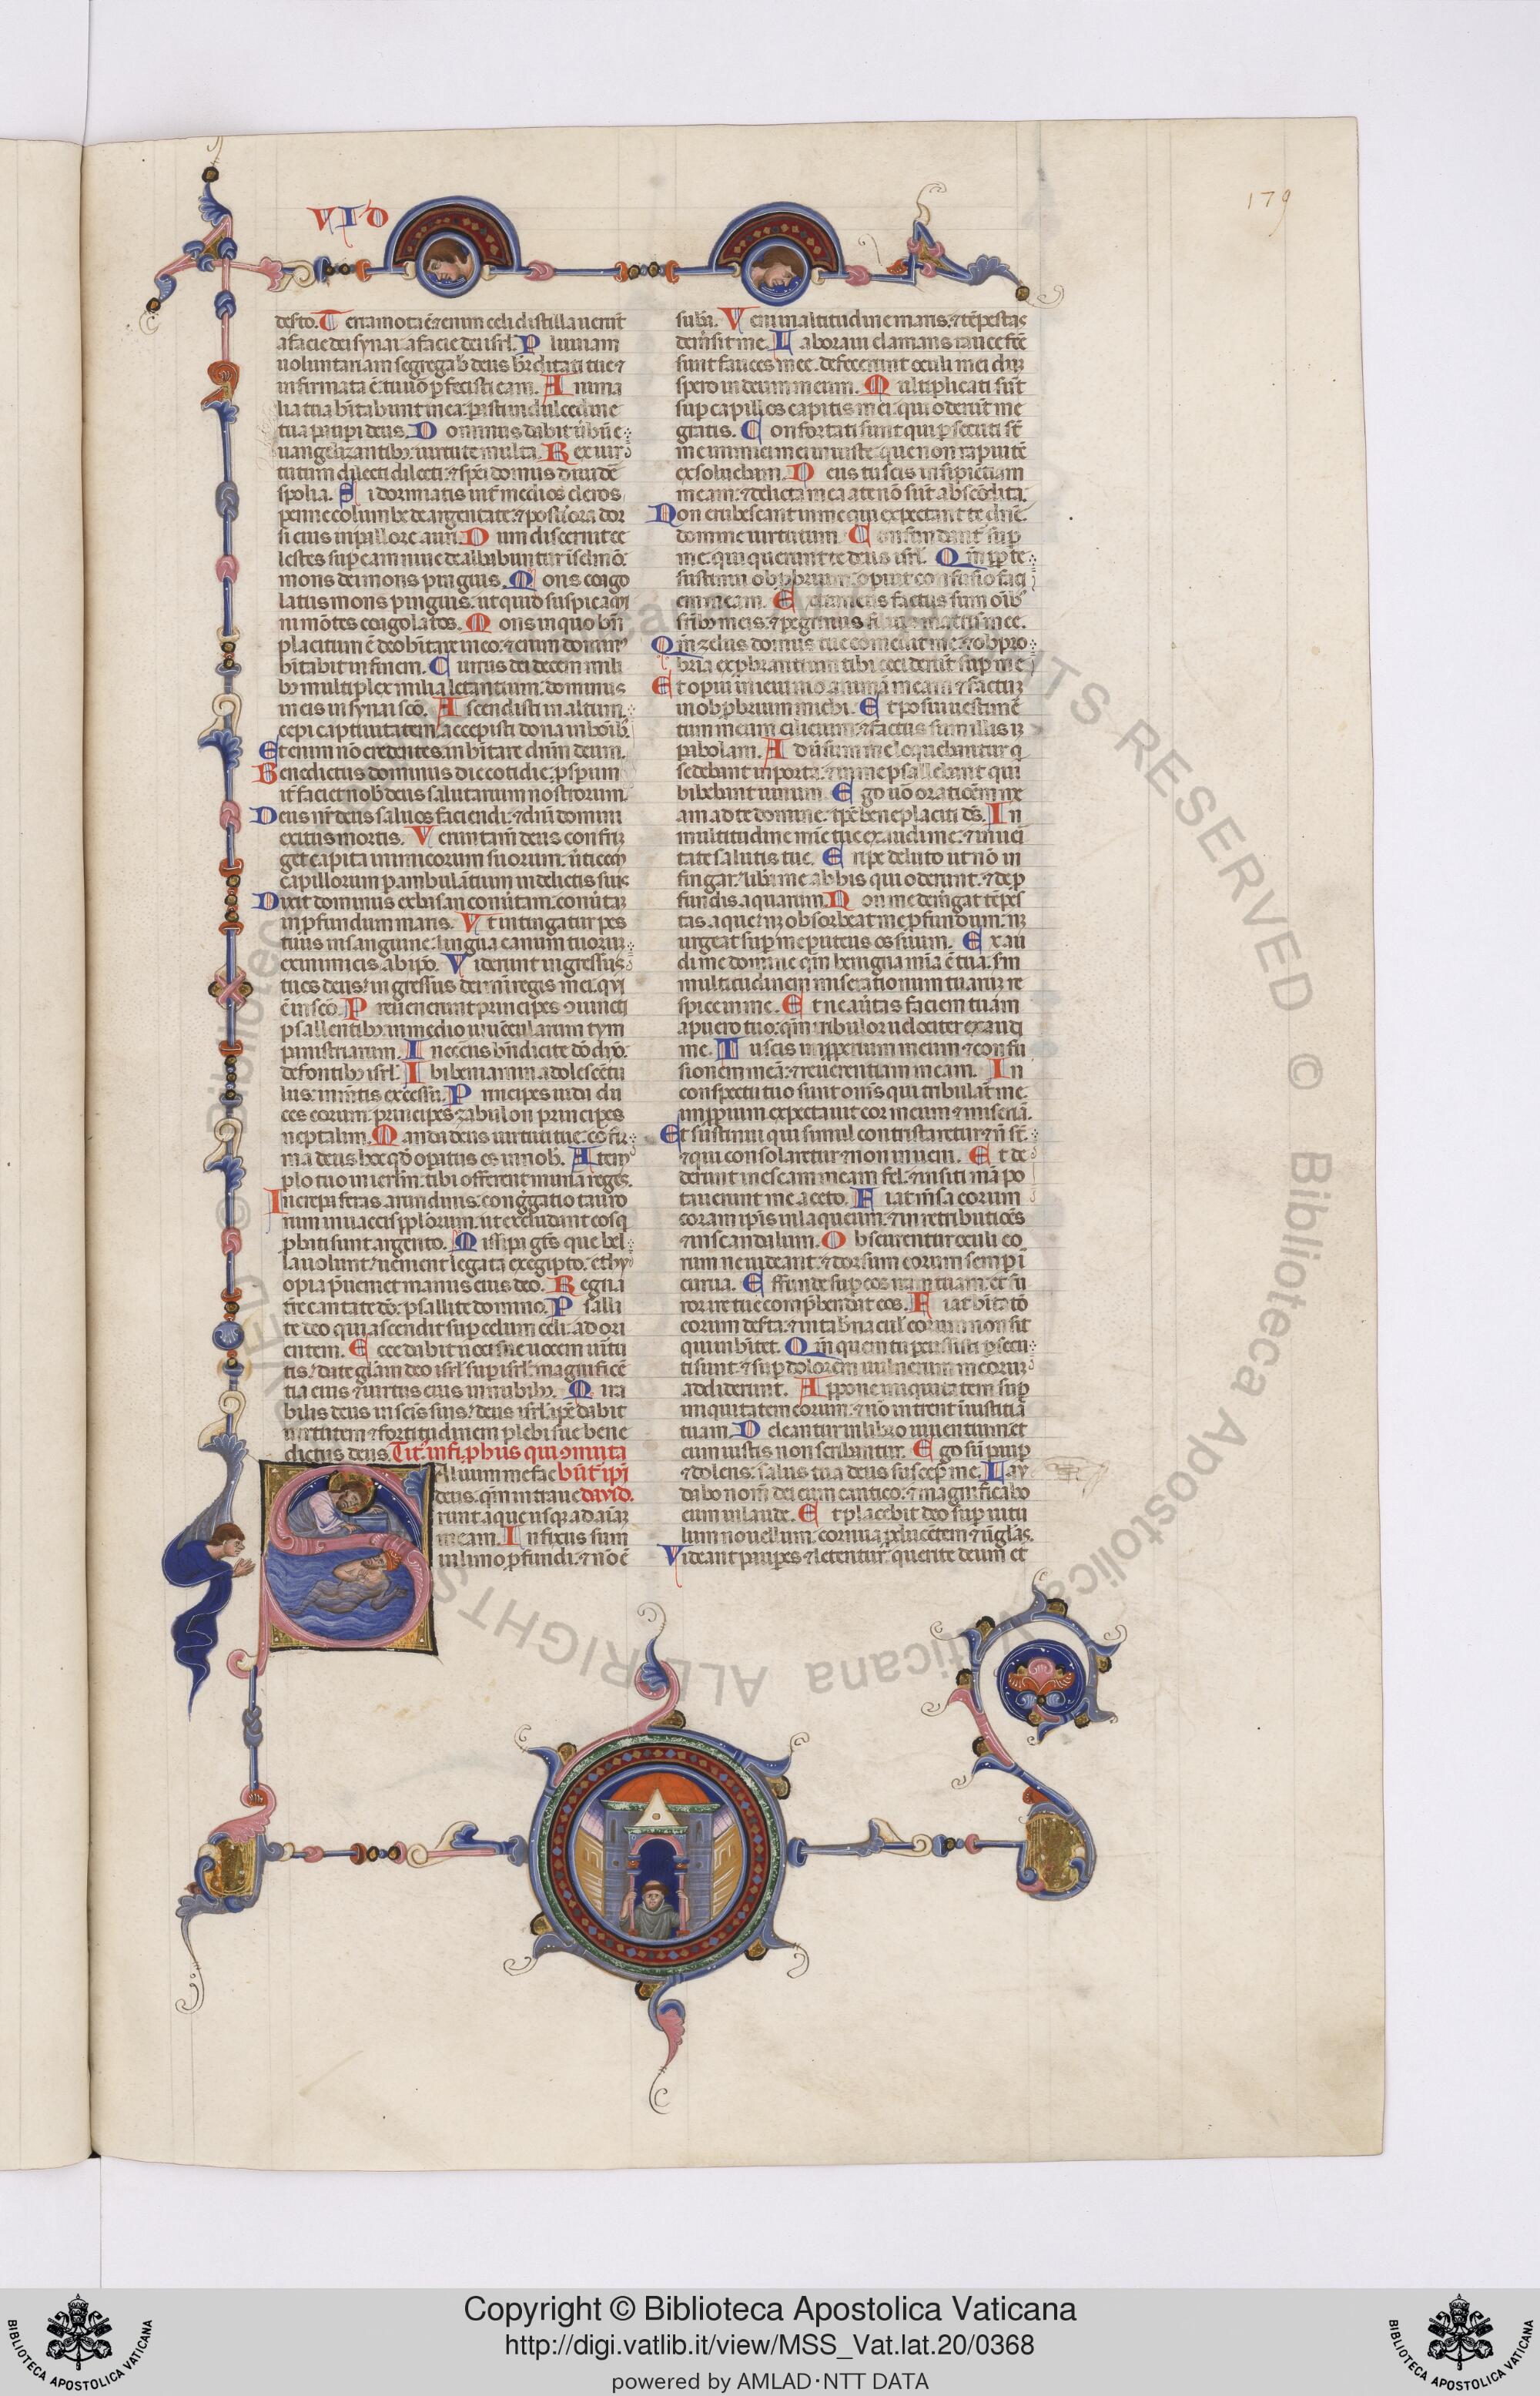 179
VID
desto. Terra mota ē etenim celi distillauerūt
a facie dei synai a facie dei isrl. Pluuiam
uoluntariam segregab deus hrditati tue ⁊
infirmata ē tu uō pfecisti eam. Anima
lia tua hītabunt in ea: parasti in dulcedine
tua paupi deus. Dominus dabit ūbū e
uangelizantibȝ: uirtute multa. Rex uir
tutum dilecti dilecti: ⁊ spēi domus diuidē
spolia. Si dormiatis int̄ medios cleros
penne columbe deargentate: ⁊ posteriora dor
si eius in pallore auri. Dum discernit ce
lestes sup eam niue dealbabuntur in selmō:
mons dei mons pinguis. Mons coago
latus mons pinguis: ut quid suspicamī
ni mōtes coagolatos. Mons in quo bn̄
placitum ē deo hītare in eo: ⁊ enim domin
hītabit in finem. Currus dei decem mili
bȝ multiplex milia letantium: dominus
in eis in synai scō. Ascendisti in altum:
cepi captiuitatem: accepisti dona in hoīb.
Etenim nō credentes: inhītare dn̄m deum.
Benedictus dominus die cotidie: pspum
it faciet nob deus salutarium nostrorum.
Deus nr̄ deus saluos faciendi: ⁊ dn̄i domini
exitus mortis. Veruntam̄ deus confrin
get capita inimicorum suorum: ūticem
capillorum pambulātium in delictis suis
Dixit dominus ex basan conūtam: conūtā
in pfundum maris. Vt intingatur pes
tuus in sanguine: lingua canum tuorum
ex inimicis ab ipō. Viderunt ingressus
tuos deus: ingressus dei mei regis mei: qui
ē in scō. Preuenerunt principes ɔiuncti
psallentibȝ: in medio iuuēcularum tym
panistriarum. In ecc̄iis bn̄dicite dō dn̄o:
de fontibȝ isrl. Ibi beniamin adolescētu
lus: in mētis excessu. Principes iuda du
ces eorum: principes zabulon principes
neptalim. Manda deus uirtuti tue: cōfir
ma deus hoc qd̄ opatus es in nob. A tem
plo tuo in ierlm̄: tibi offerent munā reges.
Increpa feras arundinis: congregatio tauro
rum in uaccis pplorum: ut excludant eos q
pbati sunt argento. Dissipa gt̄es que bel
la uolunt: uenient legati ex egipto: ethy
opia pueniet manus eius deo. Regna
tre cantate dō: psallite domino. Psalli
te deo qui ascendit sup celum celi: ad ori
entem. Ecce dabit uoci sue uocem uirtu
tis: date glām deo isrl: sup isrl: magnificē
tia eius ⁊ uirtus eius in nubibȝ. Mira
bilis deus in scīs suis: deus isrl: ipē dabit
uirtutem ⁊ fortitudinem plebi sue bene
dictus deus. Tit. in fi. p hiis qui ɔmuta
Saluum me fac būt ipī
deus: qm̄ intraue david.
runt aque usqȝ ad aīaȝ
meam. Infixus sum
in limo pfundi: ⁊ nō ē
substā. Veni in altitudinem maris: ⁊ tēpestas
demersit me. Laboraui clamans rauce fcē
sunt fauces mee: defecerunt oculi mei duȝ
spero in deum meum. Multiplicati sūt
sup capillos capitis mei: qui oderūt me
gratis. Confortati sunt qui psecuti st̄
me inimici mei iniuste: que non rapui tē
exsoluebam. Deus tu scis insipiētiam
meam: ⁊ delicta mea a te nō sūt abscōdita.
Non erubescant in me qui expectant te dn̄e:
domine uirtutum. Confundant sup
me: qui querunt te deus isrl. Qm̄ pp te
sustinui obpbrium: opuit confusio faci
em meam. Extraneus factus sum frīb
meis: ⁊ pegrinus filiis matris mee.
Qm̄ zelus domus tue comedit me: ⁊ obpro
bria expbrantium tibi ceciderūt sup me
Et opui in ieiunio animā meam: ⁊ factuȝ
in obpbrium michi. Et posui uestimē
tum meum cilicium: ⁊ factus sum illis in
pabolam. Aduersum me loquebantur q
sedebant in porta: ⁊ in me psallebant qui
bibebant uinum. Ego uō oratiōem me
am ad te domine: tpē beneplaciti ds̄. In
multitudine mīe tue exaudi me: ⁊ in ueri
tate salutis tue. Eripe de luto ut nō in
fingar: libera me ab his qui oderunt: ⁊ de p
fundis aquarum. Non me demgat tēpes
tas aque: neqȝ obsorbeat me pfundum: neqȝ
urgeat sup me puteus os suum. Exau
di me domine qm̄ benigna mīa ē tua: sm̄
multitudinem miserationum tuarum re
spice in me. Et ne auertas faciem tuam
a puero tuo: qm̄ tribulor uelociter exaudi
me. Tu scis improperium meum: ⁊ confu
sionem meā: ⁊ reuerentiam meam. In
conspectu tuo sunt oms̄ qui tribulāt me:
impprium expectauit cor meum ⁊ miseriā.
Et sustinui qui simul contristaretur ⁊ n̄ ft̄:
⁊ qui consolaretur ⁊ non inueni. Et de
derunt in escam meam fel: ⁊ in siti mā po
tauerunt me aceto. Fiat mēsa eorum
coram ipīs in laqueum: ⁊ in retributioēs
⁊ in scandalum. Obscurentur oculi eo
rum ne uideant: ⁊ dorsum eorum semp i
curua. Effunde sup eos iram tuam: et fu
ror ire tue comphendat eos. Fiat hītatō
eorum deserta: ⁊ in tabnaculis eorum non sit
qui inhītet. Qm̄ quem tu percussisti psecu
ti sunt: ⁊ sup dolorem uulnerum meorum
addiderunt. Appone iniquitatem sup
iniquitatem eorum: ⁊ nō intrent in iustitiā
tuam. Deleantur in libro uiuentium: et
cum iustis non scribantur. Ego sū paup
⁊ dolens: salus tua deus suscepit me. Lau
dabo nom̄ dei cum cantico: ⁊ magnificabo
eum in laude. Et placebit deo sup uitu
lum nouellum: cornua pducētem ⁊ ūglas.
Videant paupes ⁊ letentur: querite deum et
© Biblioteca Apostolica Vaticana ALL RIGHTS RESERVED
Copyright © Biblioteca Apostolica Vaticana
http://digi.vatlib.it/view/MSS_Vat.lat.20/0368
powered by AMLAD·NTT DATA
BIBLIOTECA APOSTOLICA VATICANA
BIBLIOTECA APOSTOLICA VATICANA